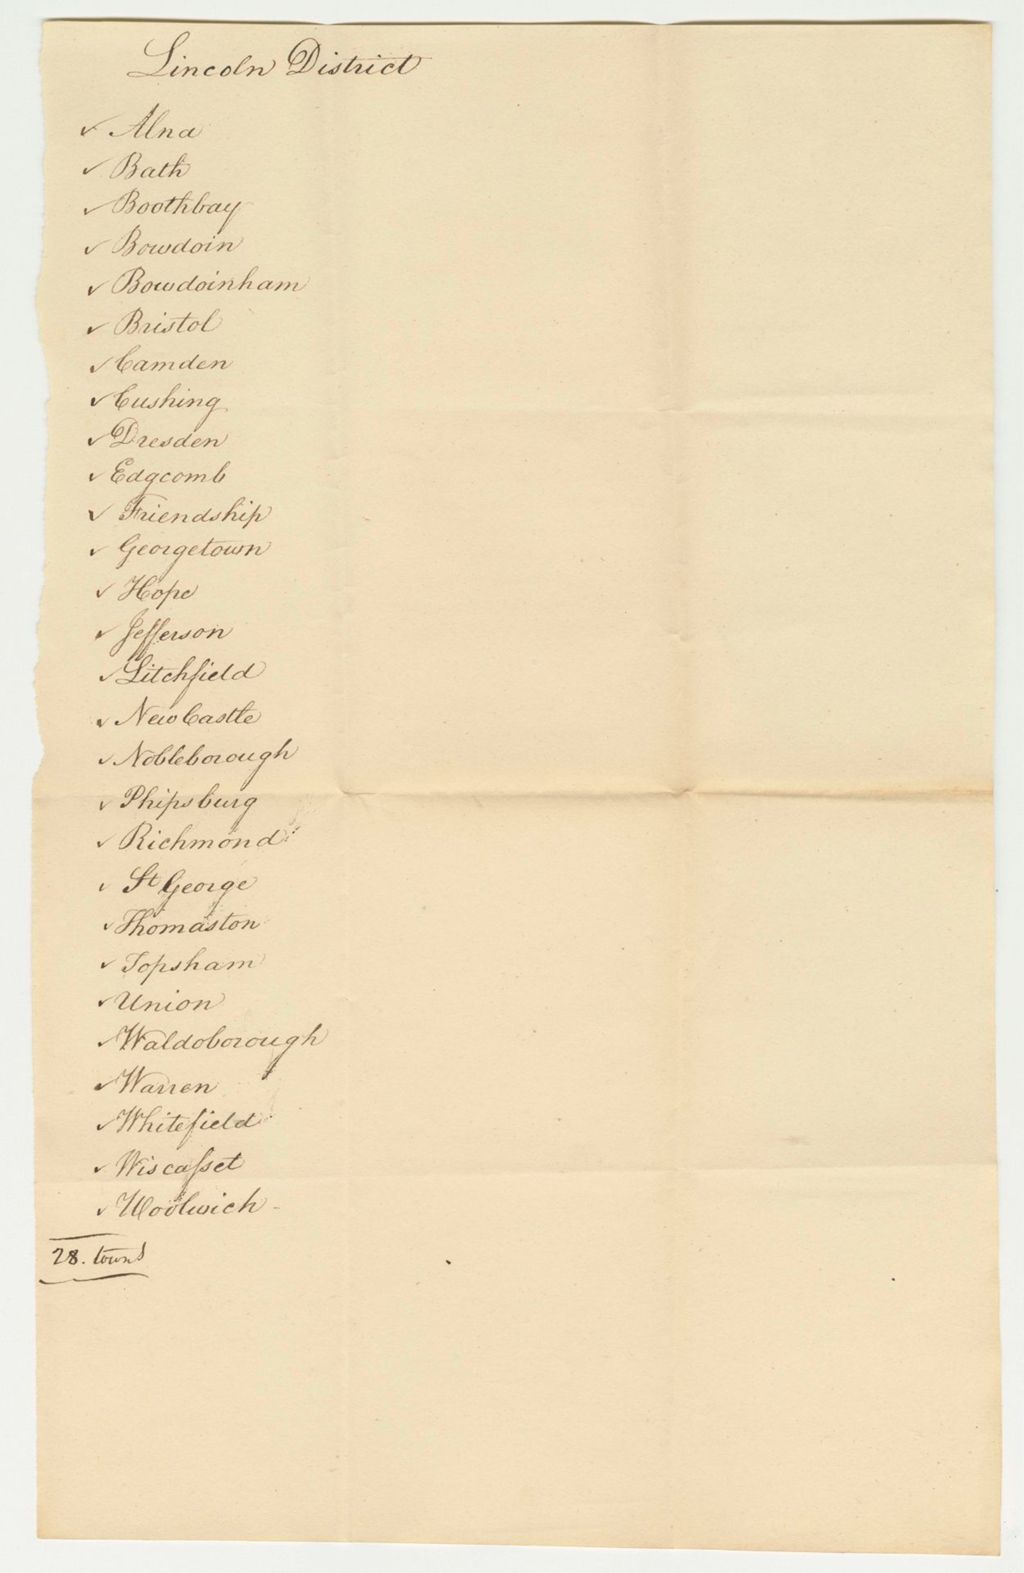 Lincoln District
✓ Alna
✓ Bath
✓ Boothbay
✓ Bowdoin
✓ Bowdoinham
✓ Bristol
✓ Camden
✓ Cushing
✓ Dresden
✓ Edgcomb
✓ Friendship
✓ Georgetown
✓ Hope
✓ Jefferson
✓ Litchfield
✓ New Castle
✓ Nobleborough
✓ Phipsburg
✓ Richmond
✓ St George
✓ Thomaston
✓ Topsham
✓ Union
✓ Waldoborough
✓ Warren
✓ Whitefield
✓ Wiscaſset
✓ Woolwich
28. towns